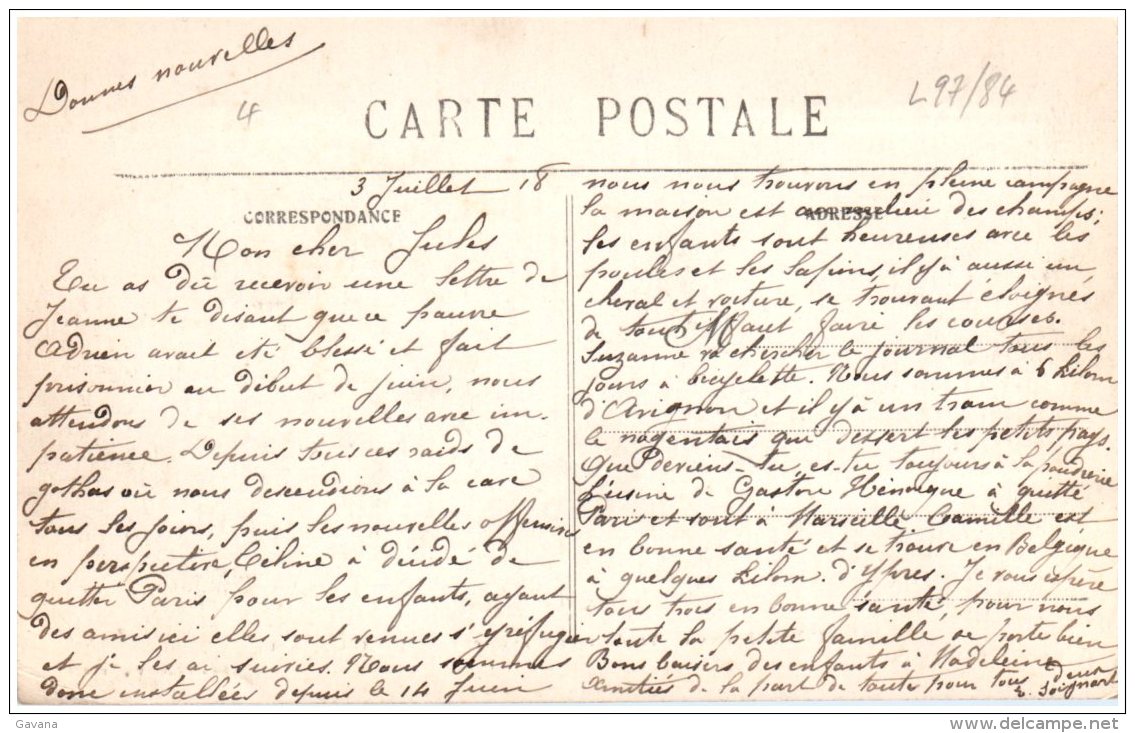 Donnes nouvelles
4
L97/84
CARTE POSTALE
3 Juillet 18
CORRESPONDANCE
Mon cher Jules
Tu as dû recevoir une lettre de
Jeanne te disant que ce pauvre
Adrien avait été blessé et fait
prisonnier au début de juin, nous
attendons de ses nouvelles avec im-
patience. Depuis tous ces raids de
gothas où nous descendions à la cave
tous les jours, puis les nouvelles offensives
en perspective, Céline à décidé de
quitter Paris pour les enfants, ayant
des amis ici elles sont venues s'y réfugier
et je les ai suivies. Nous sommes
donc installées depuis le 14 Juin
ADRESSE
nous nous trouvons en pleine campagne
la maison est au milieu des champs;
les enfants sont heureuses avec les
poules et les lapins, il y à aussi un
cheval et voiture, se trouvant éloignés
de tout il faut faire les courses.
Suzanne va chercher le journal tous les
jours à bicyclette. Nous sommes à 6 kilom
d'Avignon et il y à un tram comme
le nogentais que dessert les petits pays.
Que deviens-tu, es-tu toujours à la poudrerie
L'usine de Gaston à quitté
Paris et sont à Marseille. Camille est
en bonne santé et se trouve en Belgique
à quelques kilom. d'Ypres. Je vous espère
tous trois en bonne santé, pour nous
toute la petite famille se porte bien
Bons baisers des enfants à Madeleine
Amitiés de la part de toute pour tous
Gavana
delcampe.net